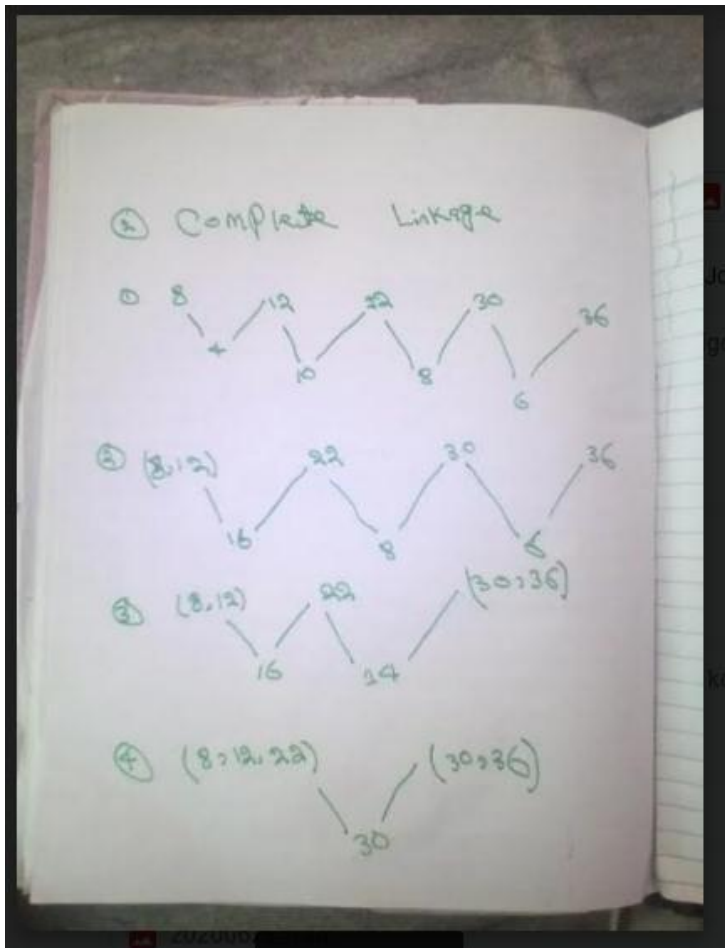 ② Complete Linkage
① 8 12 22 30 36
4 10 8 6
② (8,12) 22 30 36
16 8 6
③ (8,12) 22 (30,36)
16 14
④ (8,12,22) (30,36)
30